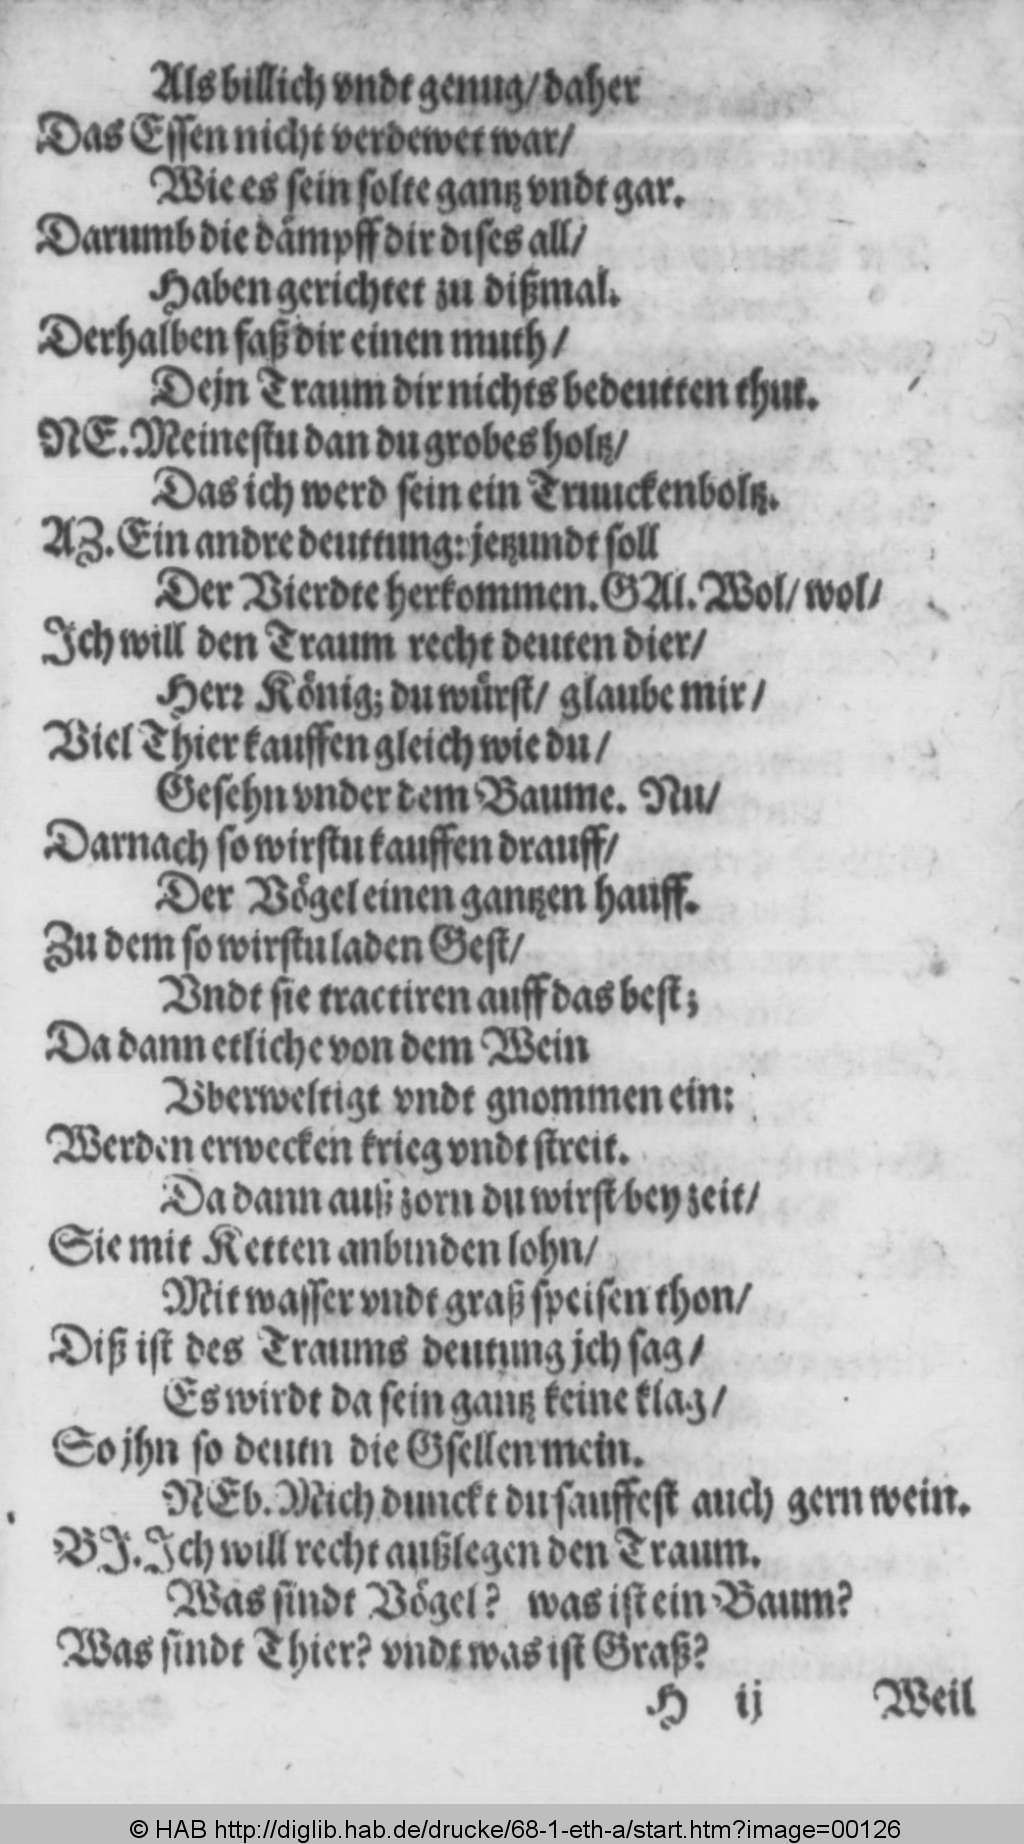 Als billich vndt genug/ daher
Das Essen nicht verdewet war/
Wie es sein solte gantz vndt gar.
Darumb die dämpff dir dises all/
Haben gerichtet zu dißmal.
Derhalben faß dir einen muth/
Dejn Traum dir nichts bedeutten thut.
NE. Meinestu dan du grobes holtz/
Das ich werd sein ein Trunckenboltz.
AZ. Ein andre deuttung: jetzundt soll
Der Vierdte herkommen. GAl. Wol/ wol/
Ich will den Traum recht deuten dier/
Herr König; du würst/ glaube mir/
Viel Thier kauffen gleich wie du/
Gesehn vnder dem Baume. Nu/
Darnach so wirstu kauffen drauff/
Der Vögel einen gantzen hauff.
Zu dem so wirstu laden Gest/
Vndt sie tractiren auff das best;
Da dann etliche von dem Wein
Vberweltigt vndt gnommen ein:
Werden erwecken krieg vndt streit.
Da dann auß zorn du wirst bey zeit/
Sie mit Ketten anbinden lohn/
Mit wasser vndt graß speisen thon/
Diß ist des Traums deutung jch sag/
Es wirdt da sein gantz keine klag/
So jhn so deutn die Gsellen mein.
NEb. Mich dunckt du sauffest auch gern wein.
BJ. Ich will recht außlegen den Traum.
Was sindt Vögel? was ist ein Baum?
Was sindt Thier? vndt was ist Graß?
H ij Weil
© HAB http://diglib.hab.de/drucke/68-1-eth-a/start.htm?image=00126